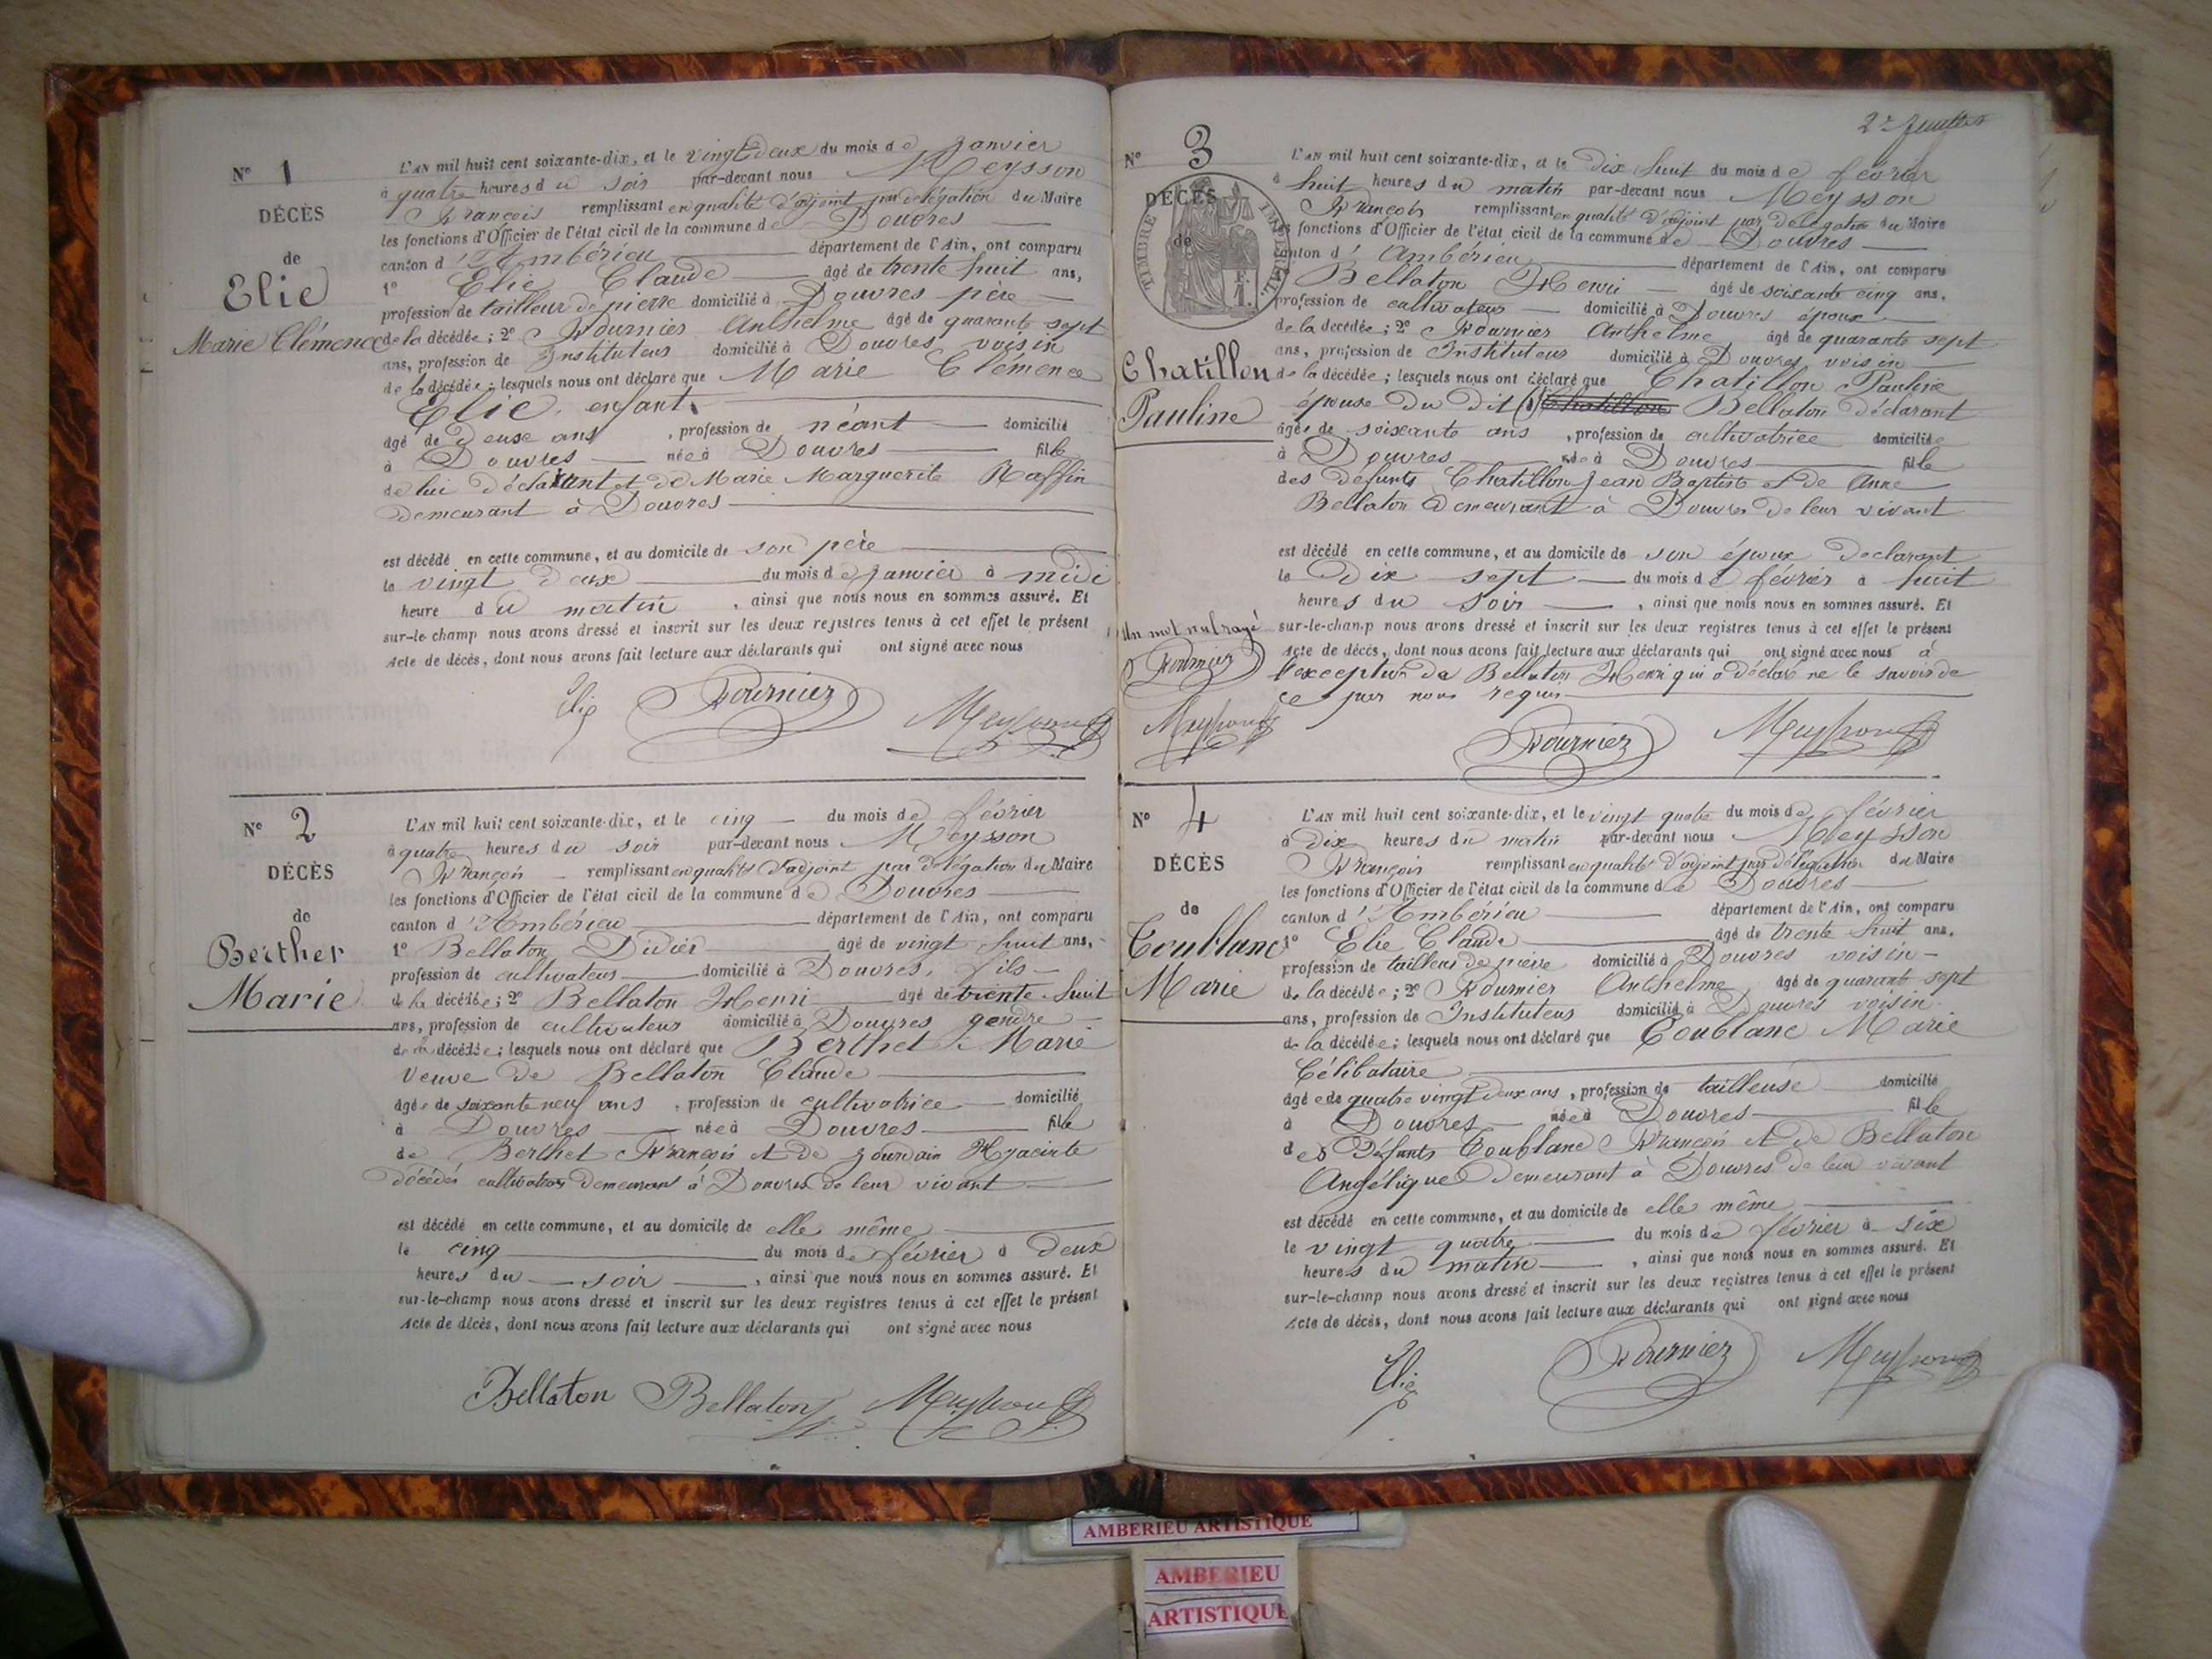 N° 1
DÉCÈS
de
Elie
Marie Clémence
L'AN mil huit cent soixante-dix, et le vingt deux du mois de janvier
à quatre heures du soir par-devant nous Meysson
François remplissant en qualité d'adjoint par délégation du Maire
les fonctions d'Officier de l'état civil de la commune de Douvres
canton d'Ambérieu département de l'Ain, ont comparu
1° Elie Claude âgé de trente huit ans,
profession de tailleur de pierre domicilié à Douvres père
de la décédée; 2° Fournier Anthelme âgé de quarante sept
ans, profession de Instituteur domicilié à Douvres voisin
de la décédée; lesquels nous ont déclaré que Marie Clémence
Elie enfant
âgé de deux ans, profession de néant domicilié
à Douvres née à Douvres fille
de lui déclarant et de Marie Marguerite Raffin
demeurant à Douvres
est décédé en cette commune, et au domicile de son père
le vingt deux du mois de janvier à midi
heure du matin, ainsi que nous nous en sommes assuré. Et
sur-le-champ nous avons dressé et inscrit sur les deux registres tenus à cet effet le présent
Acte de décès, dont nous avons fait lecture aux déclarants qui ont signé avec nous
Elie Fournier Meysson
N° 2
DÉCÈS
de
Berthet
Marie
L'AN mil huit cent soixante-dix, et le cinq du mois de février
à quatre heures du soir par-devant nous Meysson
François remplissant en qualité d'adjoint par délégation du Maire
les fonctions d'Officier de l'état civil de la commune de Douvres
canton d'Ambérieu département de l'Ain, ont comparu
1° Bellaton Didier âgé de vingt huit ans,
profession de cultivateur domicilié à Douvres, fils
de la décédée; 2° Bellaton Henri âgé de trente huit
ans, profession de cultivateur domicilié à Douvres gendre
de la décédée; lesquels nous ont déclaré que Berthet Marie
Veuve de Bellaton Claude
âgée de soixante neuf ans, profession de cultivatrice domicilié
à Douvres née à Douvres fille
de Berthet François et de Jourdain Hyacinte
décédés cultivateurs demeurant à Douvres de leur vivant
est décédé en cette commune, et au domicile de elle même
le cinq du mois de février à deux
heures du soir, ainsi que nous nous en sommes assuré. Et
sur-le-champ nous avons dressé et inscrit sur les deux registres tenus à cet effet le présent
Acte de décès, dont nous avons fait lecture aux déclarants qui ont signé avec nous
Bellaton Bellaton Meysson
2e feuillet
N° 3
DÉCÈS
de
TIMBRE IMPÉRIAL
Chatillon
Pauline
L'AN mil huit cent soixante-dix, et le dix huit du mois de février
à huit heures du matin par-devant nous Meysson
François remplissant en qualité d'adjoint par délégation du Maire
les fonctions d'Officier de l'état civil de la commune de Douvres
canton d'Ambérieu département de l'Ain, ont comparu
Bellaton Henri âgé de soixante cinq ans,
profession de cultivateur domicilié à Douvres époux
de la décédée; 2° Fournier Anthelme âgé de quarante sept
ans, profession de Instituteur domicilié à Douvres voisin
de la décédée; lesquels nous ont déclaré que Chatillon Pauline
épouse du dit (1) Chatillon Bellaton déclarant
âgée de soixante ans, profession de cultivatrice domiciliée
à Douvres née à Douvres fille
des défunts Chatillon Jean Baptiste et de Anne
Bellaton demeurant à Douvres de leur vivant
est décédé en cette commune, et au domicile de son époux déclarant
le dix sept du mois de février à huit
heures du soir, ainsi que nous nous en sommes assuré. Et
sur-le-champ nous avons dressé et inscrit sur les deux registres tenus à cet effet le présent
Acte de décès, dont nous avons fait lecture aux déclarants qui ont signé avec nous à
l'exception de Bellaton Henri qui a déclaré ne le savoir de
ce par nous requis
Un mot nul rayé
Fournier
Meysson
Fournier Meysson
N° 4
DÉCÈS
de
Coublanc
Marie
L'AN mil huit cent soixante-dix, et le vingt quatre du mois de février
à dix heures du matin par-devant nous Meysson
François remplissant en qualité d'adjoint par délégation du Maire
les fonctions d'Officier de l'état civil de la commune de Douvres
canton d'Ambérieu département de l'Ain, ont comparu
1° Elie Claude âgé de trente huit ans,
profession de tailleur de pierre domicilié à Douvres voisin
de la décédée; 2° Fournier Anthelme âgé de quarante sept
ans, profession de Instituteur domicilié à Douvres voisin
de la décédée; lesquels nous ont déclaré que Coublanc Marie
Célibataire
âgée de quatre vingt deux ans, profession de tailleuse domicilié
à Douvres née à Douvres fille
des défunts Coublanc François et de Bellaton
Angélique demeurant à Douvres de leur vivant
est décédé en cette commune, et au domicile de elle même
le vingt quatre du mois de février à six
heures du matin, ainsi que nous nous en sommes assuré. Et
sur-le-champ nous avons dressé et inscrit sur les deux registres tenus à cet effet le présent
Acte de décès, dont nous avons fait lecture aux déclarants qui ont signé avec nous
Elie Fournier Meysson
AMBERIEU ARTISTIQUE
AMBERIEU
ARTISTIQUE